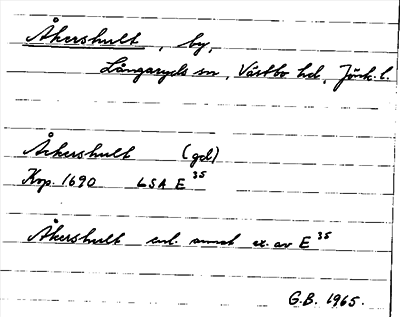 Åkershult, by,
Långaryds sn, Västbo hd, Jönk. l.
Åkershult (gd)
Kop. 1690 LSA E 35
Åkershult enl. annat ex. av E 35
G.B. 1965.